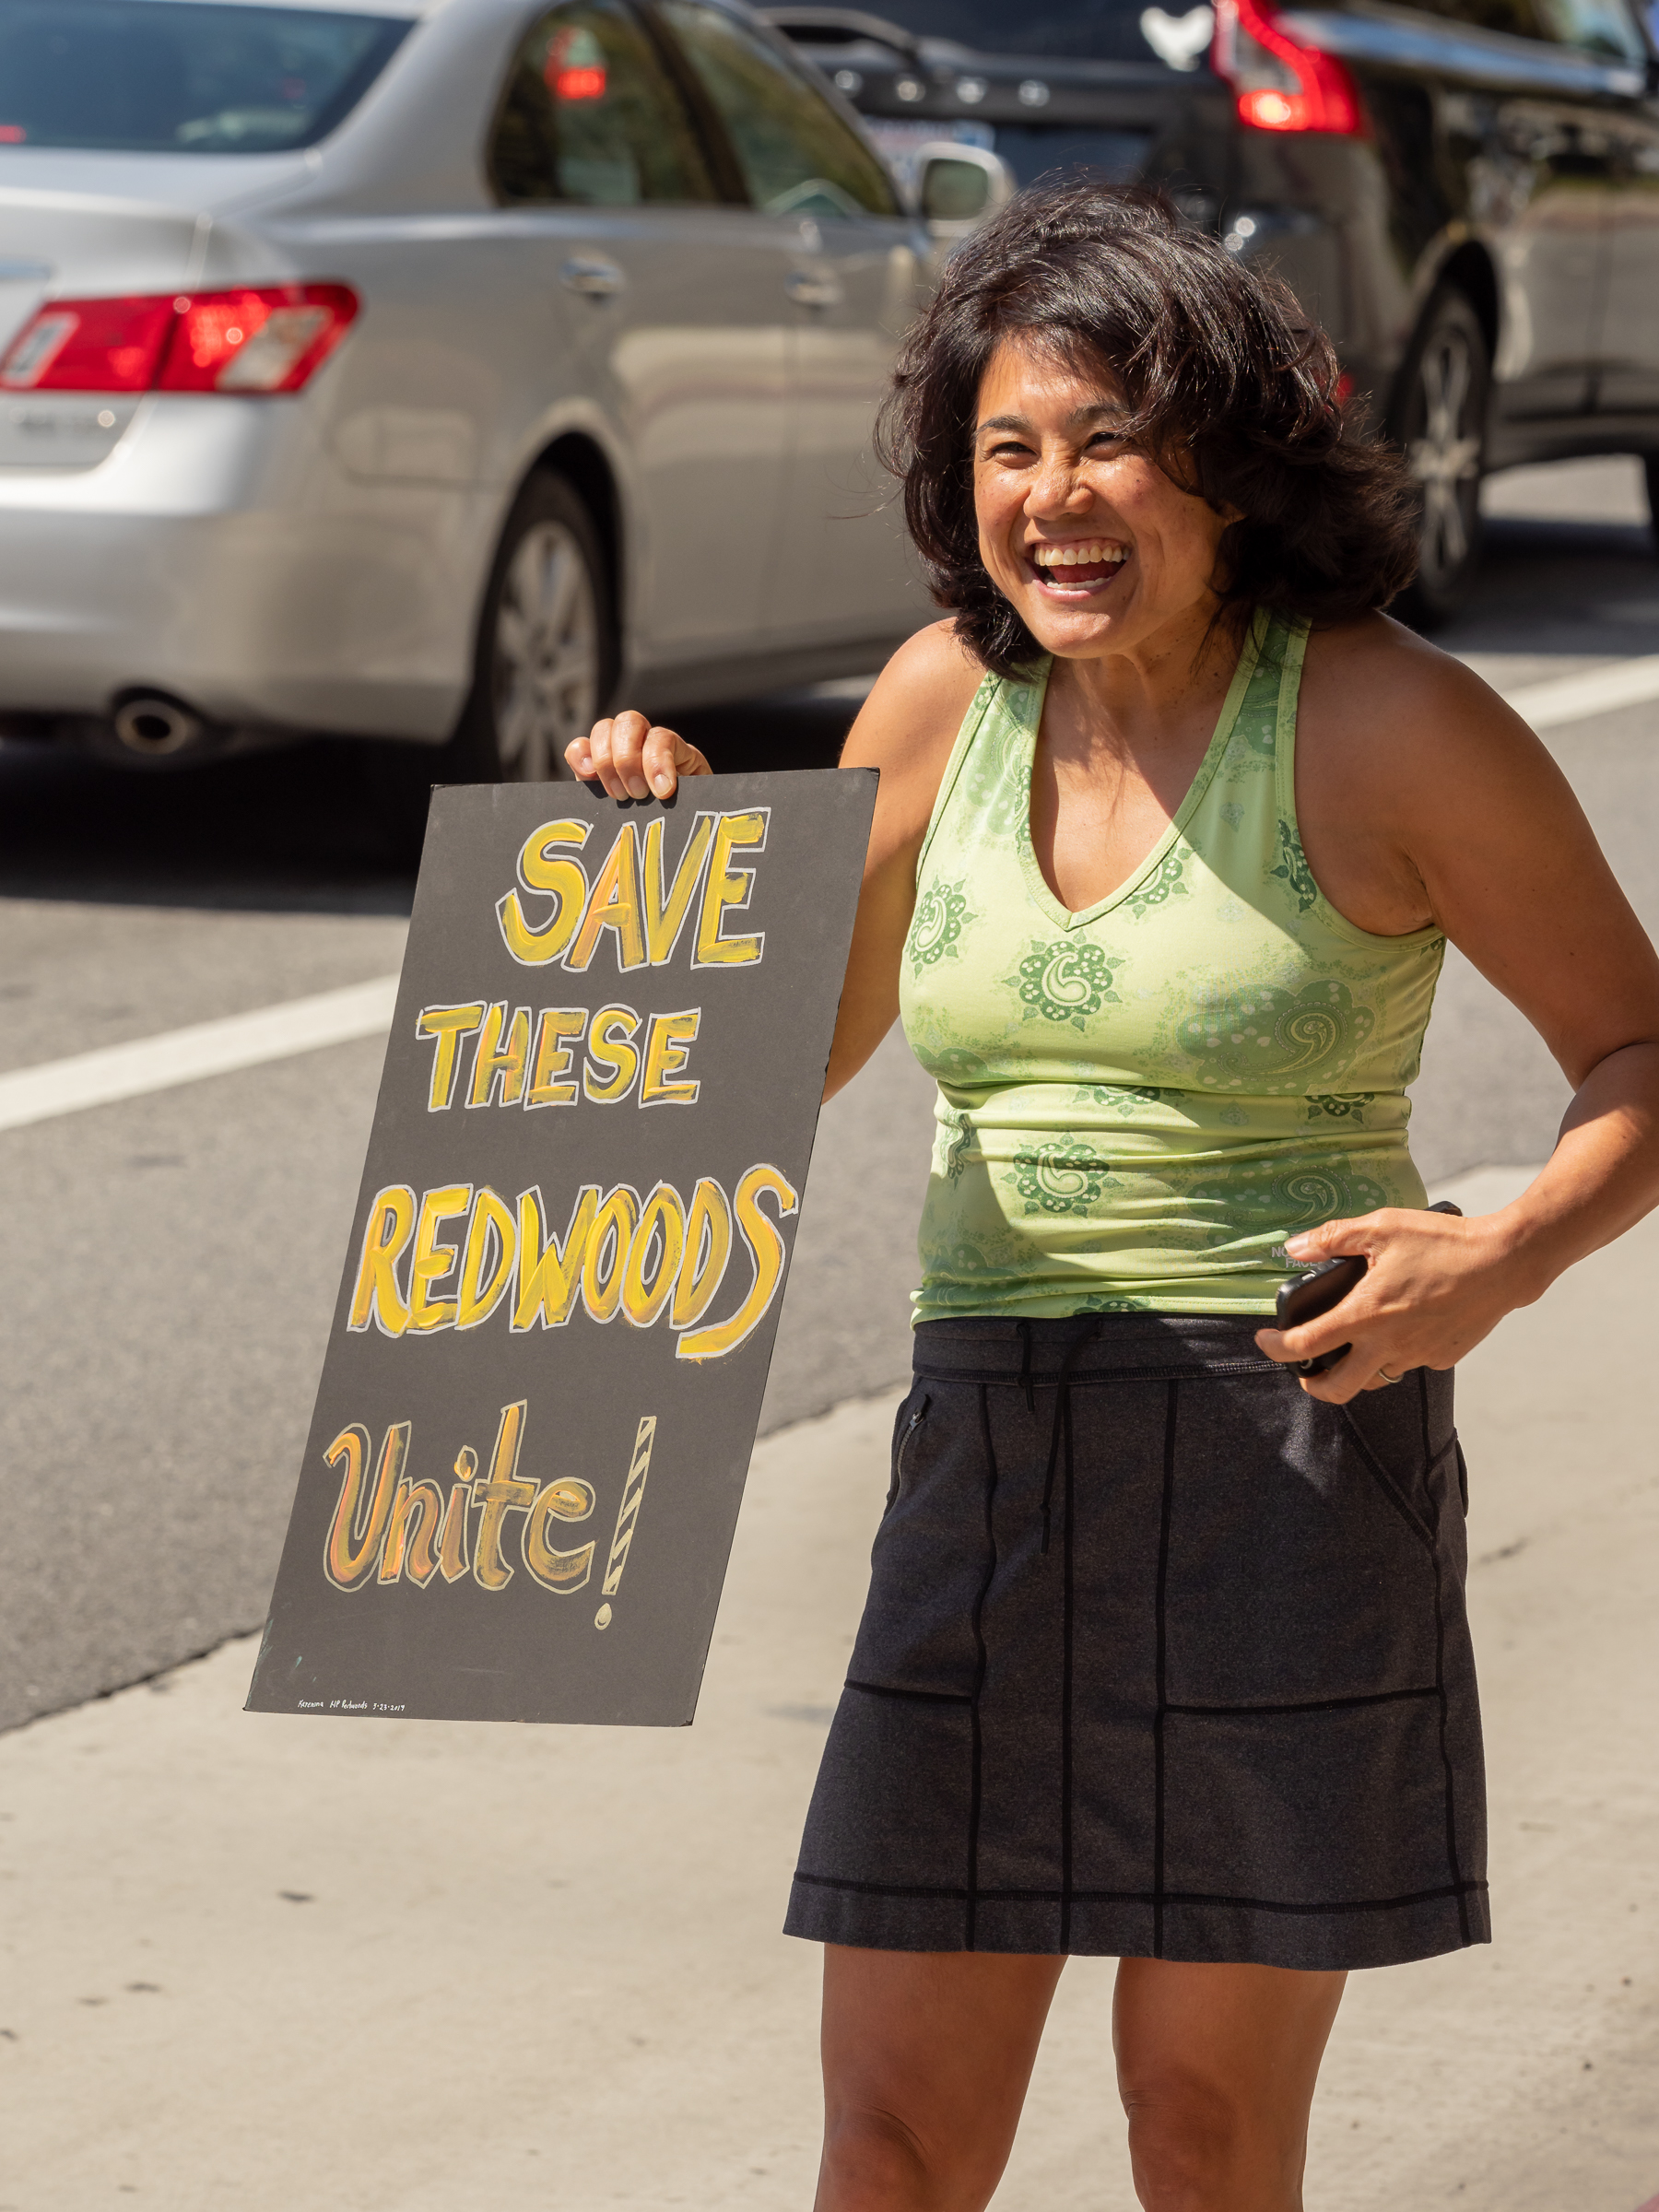 SAVE
THESE
REDWOODS
Unite!
HP Redwoods 3-23-2019
NORTH
FACE